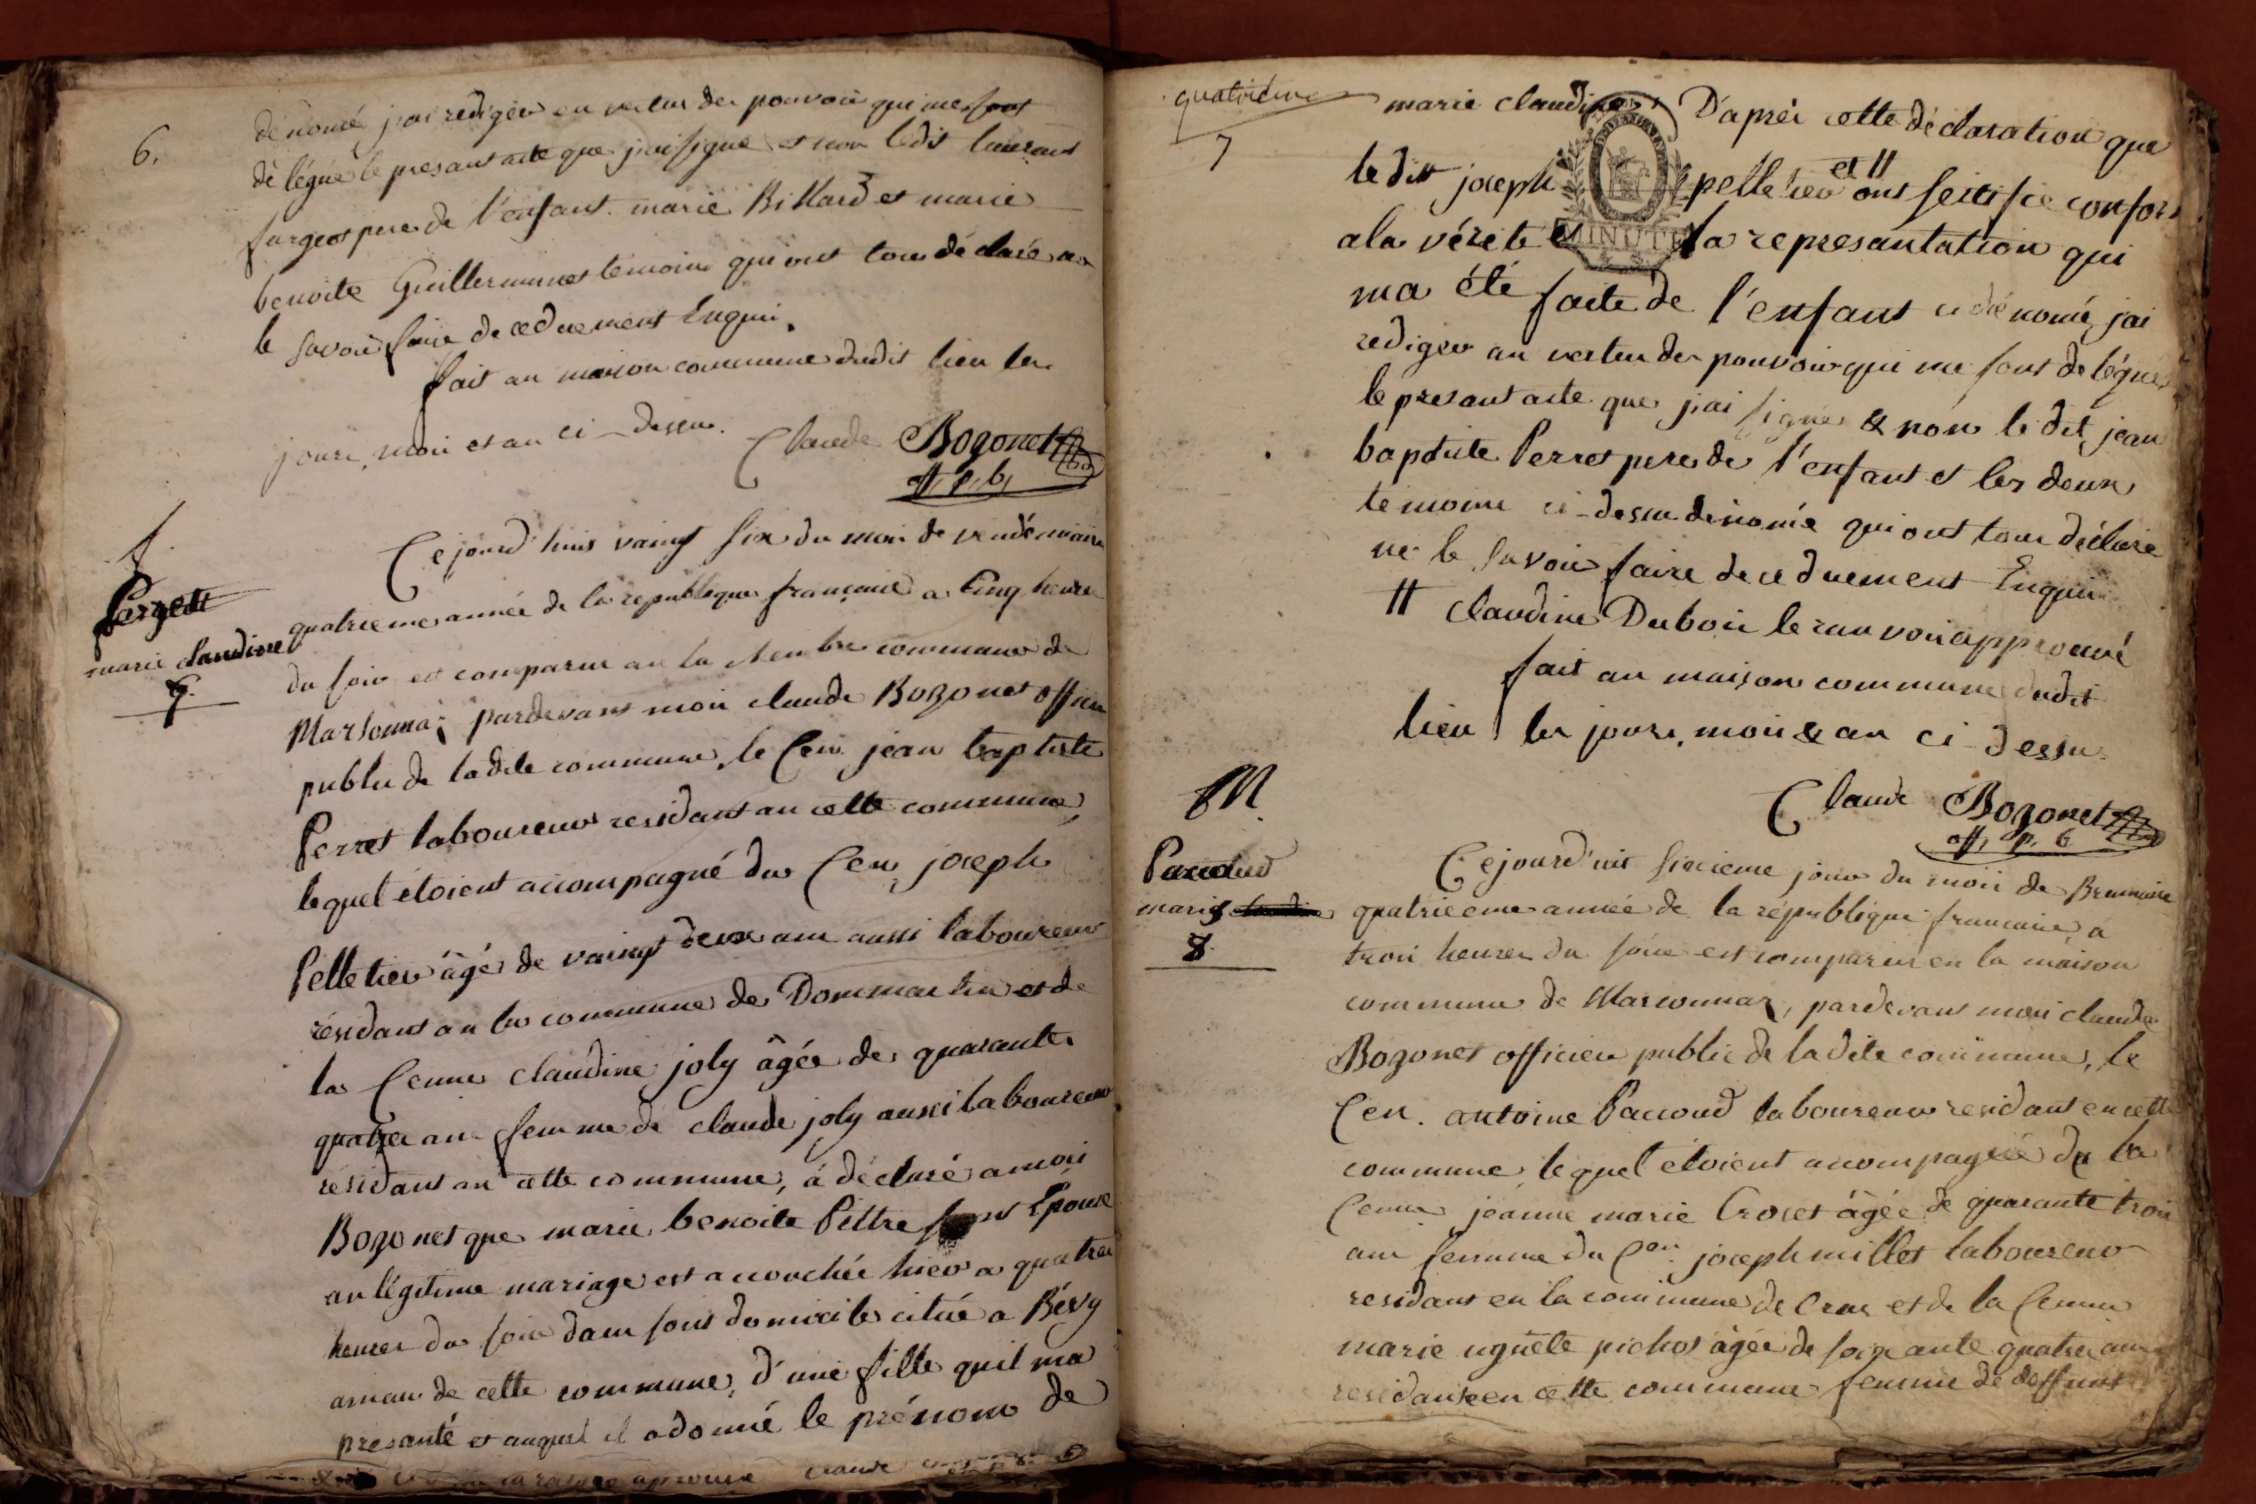 6.
dénomé jai rediger en vertus des pouvoir qui me sont
délégué le presant acte que jai signe et non ledit laurant
fargeot pere de l'enfant. marie Billard et marie
benoite Guillerminet temoins qui ont tous déclaré ne
le savoir faire de ce duement Enquis.
fait au maison commune dudit lieu les
jours, moi et an ci-dessu. Claude Bozonet
off, p, b,
f.
Perret
marie claudine
7.
Cejourd'huis vaingt six du moi de vendémiaire
quatrieme année de la republique française a cinq heure
du soir est comparus au la chambre commune de
Marsonnaz pardevant moi claude Bozonet officier
public de ladite commune, le Cen jean baptiste
Perret laboureur residant an cette commune,
lequel étoient accompagné du Cen, joseph
Pelletier âgé de vaingt deux ans aussi laboureur
résidant an la commune de Dommartin et de
la Cenne claudine joly âgée de quarante
quatre ans femme de claude joly aussi laboureur
résidant an cette commune, à déclaré a moi
Bozonet que marie benoite Pittre sont Epouse
an légitime mariage est accouchée hier a quatre
heures du soir dans sont domicile citué a Bévy
amau de cette commune, d'une fille quil ma
presanté et auquel il a donné le prénom de
approuvé claude
quatrieme
7
marie claudine, D'après cette déclaration que
le dit joseph pelletier et # ont sertifie confor
MINUTE
a la vérité & la represantation qui
ma été faite de l'enfant ci dénomé, jai
rediger au vertu des pouvoir qui me sont délégués
le presant acte que jai signé & non le dit jean
baptiste Perret pere de l'enfant et les deux
temoins ci-dessu dénomé qui ont tous déclaré
ne le savoir faire de ce duement Enquis
# claudine Duboi le ranvoi approuvé
fait au maison commune dudit
lieu les jours, moi & an ci-dessu.
Claude Bozonet
off, p, b
M.
Pacoud
marie claudine
8
Cejourd'uit sixieme jour du moi de Brumaire
quatrieeme année de la république francaise, a
troi heures du soir est comparus en la maison
commune de Marsonnaz, pardevant moi claude
Bozonet officier public de ladite commune, le
Cen. antoine Pacoud laboureur residant en cette
commune, lequel étoient accompagné de la
Cenne jeanne marie Crozet âgée de quarante troi
ans femme du Cen. joseph millet laboureur
residant en la commune de Cras et de la Cenne
marie uguete pichot âgée de soixante quatre ans
residante en cette commune femme de deffunt